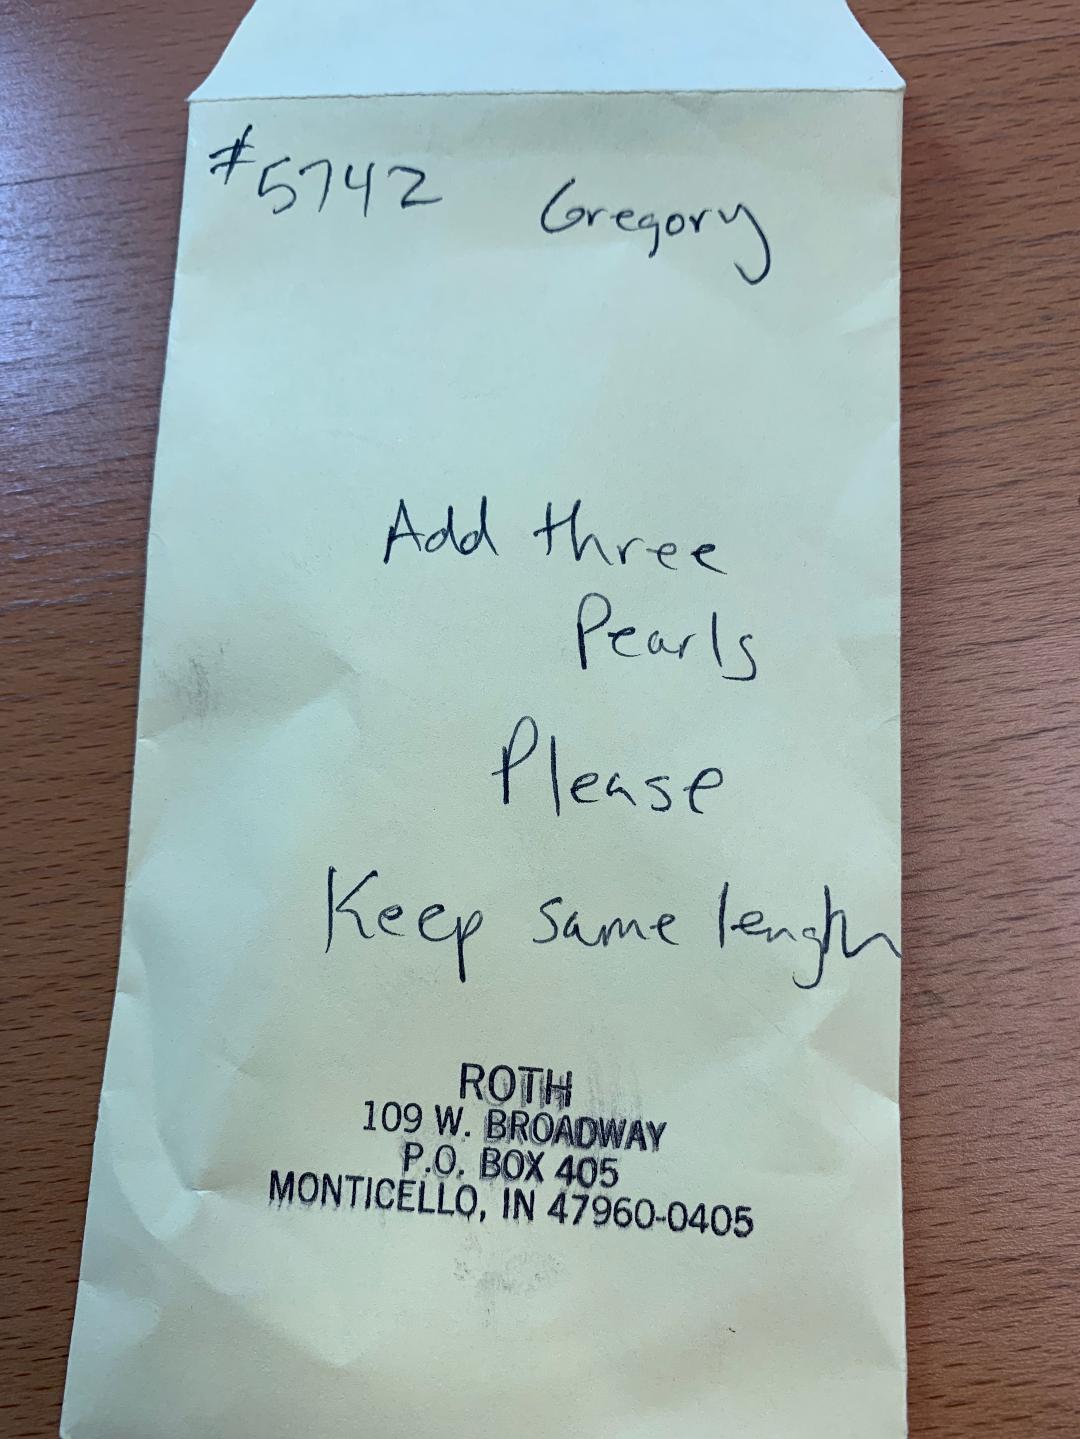 #5742 Gregory
Add three
Pearls
Please
Keep same length
ROTH
109 W. BROADWAY
P.O. BOX 405
MONTICELLO, IN 47960-0405